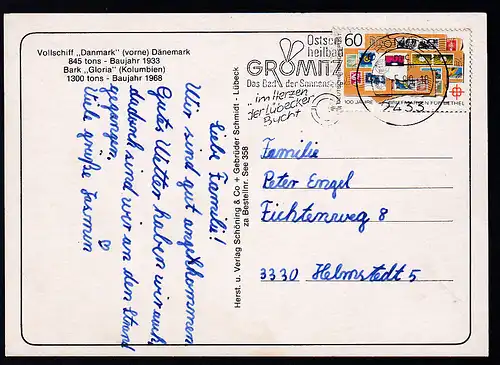 Vollschiff „Danmark" (vorne) Dänemark
845 tons - Baujahr 1933
Bark „Gloria" (Kolumbien)
1300 tons - Baujahr 1968
Liebe Familie!
Wir sind gut angekommen
Gutes Wetter haben wir auch,
dadurch sind wir an den Strand
gegangen.
Viele grüße Jasmin
Herst. u. Verlag Schöning & Co + Gebrüder Schmidt - Lübeck
za Bestellnr. See 358
Ostsee
heilbad
GRÖMITZ
Das Bad der Sonnenseite
im Herzen
der Lübecker
Bucht
60
100 JAHRE BRIEFMARKEN FÜR BETHEL
2433
Familie
Peter Engel
Fichtenweg 8
3330 Helmstedt 5